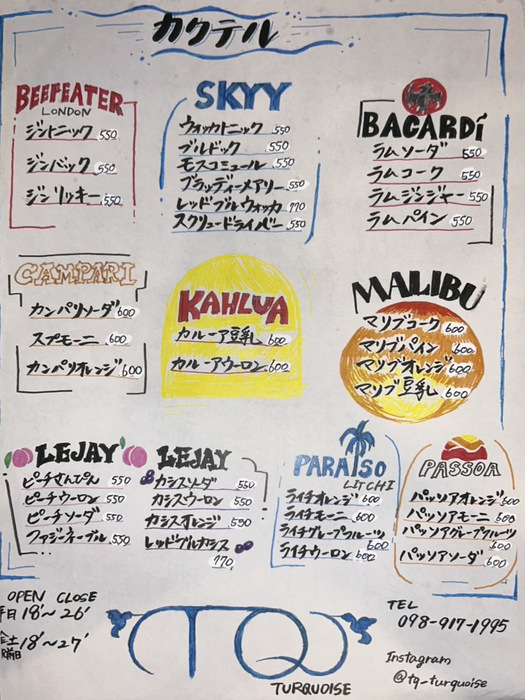 カクテル
BEEFEATER
LONDON
ジントニック 550
ジンバック 550
ジンリッキー 550
SKYY
ウォッカトニック 550
ブルドック 550
モスコミュール 550
ブラッディーメアリー 550
レッドブルウォッカ 770
スクリュードライバー 550
BACARDí
ラムソーダ 550
ラムコーク 550
ラムジンジャー 550
ラムパイン 550
CAMPARI
カンパリソーダ 600
スプモーニ 600
カンパリオレンジ 600
KAHLUA
カルーア豆乳 600
カルーアウーロン 600
MALIBU
マリブコーク 600
マリブパイン 600
マリブオレンジ 600
マリブ豆乳 600
LEJAY
ピーチさんぴん 550
ピーチウーロン 550
ピーチソーダ 550
ファジーネーブル 550
LEJAY
カシスソーダ 550
カシスウーロン 550
カシスオレンジ 550
レッドブルカシス
770
PARAISO
LITCHI
ライチオレンジ 600
ライチモーニ 600
ライチグレープフルーツ
600
ライチウーロン 600
PASSOA
パッソアオレンジ 600
パッソアモーニ 600
パッソアグレープフルーツ
600
パッソアソーダ 600
OPEN CLOSE
平日 18'〜26'
18'〜27'
TQ
TURQUOISE
TEL
098-917-1995
Instagram
@tq_turquoise